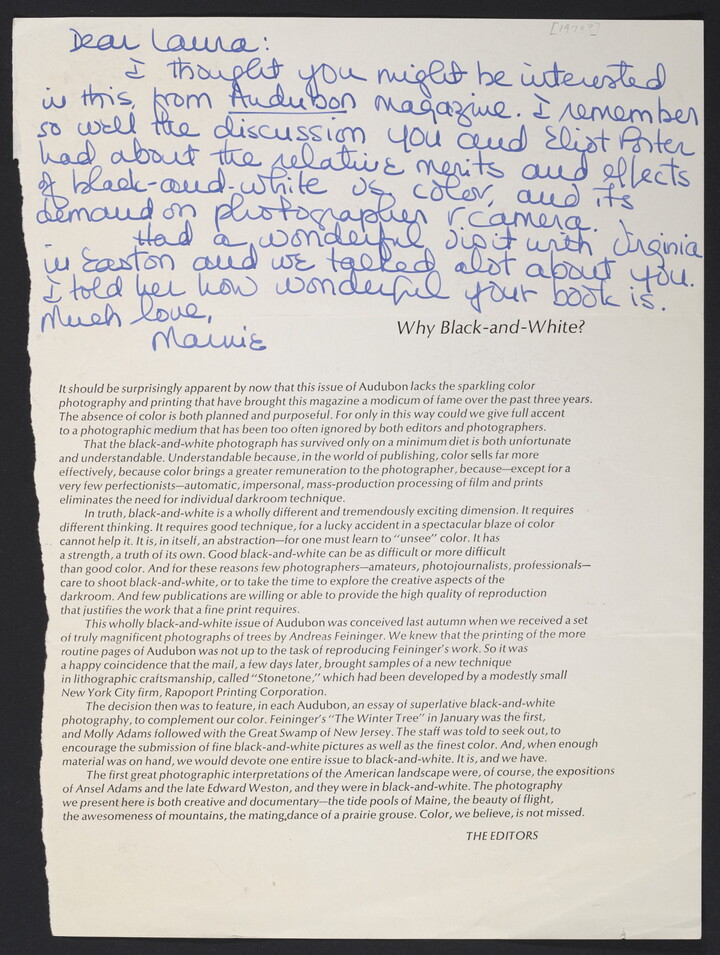 [1970?]
Dear Laura:
I thought you might be interested
in this, from Audubon magazine. I remember
so well the discussion you and Eliot Porter
had about the relative merits and effects
of black-and-white vs. color, and its
demand on photographer & camera.
Had a wonderful visit with Virginia
in Easton and we talked alot about you.
I told her how wonderful your book is.
Much love,
Marnie
Why Black-and-White?
It should be surprisingly apparent by now that this issue of Audubon lacks the sparkling color
photography and printing that have brought this magazine a modicum of fame over the past three years.
The absence of color is both planned and purposeful. For only in this way could we give full accent
to a photographic medium that has been too often ignored by both editors and photographers.
That the black-and-white photograph has survived only on a minimum diet is both unfortunate
and understandable. Understandable because, in the world of publishing, color sells far more
effectively, because color brings a greater remuneration to the photographer, because—except for a
very few perfectionists—automatic, impersonal, mass-production processing of film and prints
eliminates the need for individual darkroom technique.
In truth, black-and-white is a wholly different and tremendously exciting dimension. It requires
different thinking. It requires good technique, for a lucky accident in a spectacular blaze of color
cannot help it. It is, in itself, an abstraction—for one must learn to "unsee" color. It has
a strength, a truth of its own. Good black-and-white can be as difficult or more difficult
than good color. And for these reasons few photographers—amateurs, photojournalists, professionals—
care to shoot black-and-white, or to take the time to explore the creative aspects of the
darkroom. And few publications are willing or able to provide the high quality of reproduction
that justifies the work that a fine print requires.
This wholly black-and-white issue of Audubon was conceived last autumn when we received a set
of truly magnificent photographs of trees by Andreas Feininger. We knew that the printing of the more
routine pages of Audubon was not up to the task of reproducing Feininger's work. So it was
a happy coincidence that the mail, a few days later, brought samples of a new technique
in lithographic craftsmanship, called "Stonetone," which had been developed by a modestly small
New York City firm, Rapoport Printing Corporation.
The decision then was to feature, in each Audubon, an essay of superlative black-and-white
photography, to complement our color. Feininger's "The Winter Tree" in January was the first,
and Molly Adams followed with the Great Swamp of New Jersey. The staff was told to seek out, to
encourage the submission of fine black-and-white pictures as well as the finest color. And, when enough
material was on hand, we would devote one entire issue to black-and-white. It is, and we have.
The first great photographic interpretations of the American landscape were, of course, the expositions
of Ansel Adams and the late Edward Weston, and they were in black-and-white. The photography
we present here is both creative and documentary—the tide pools of Maine, the beauty of flight,
the awesomeness of mountains, the mating dance of a prairie grouse. Color, we believe, is not missed.
THE EDITORS